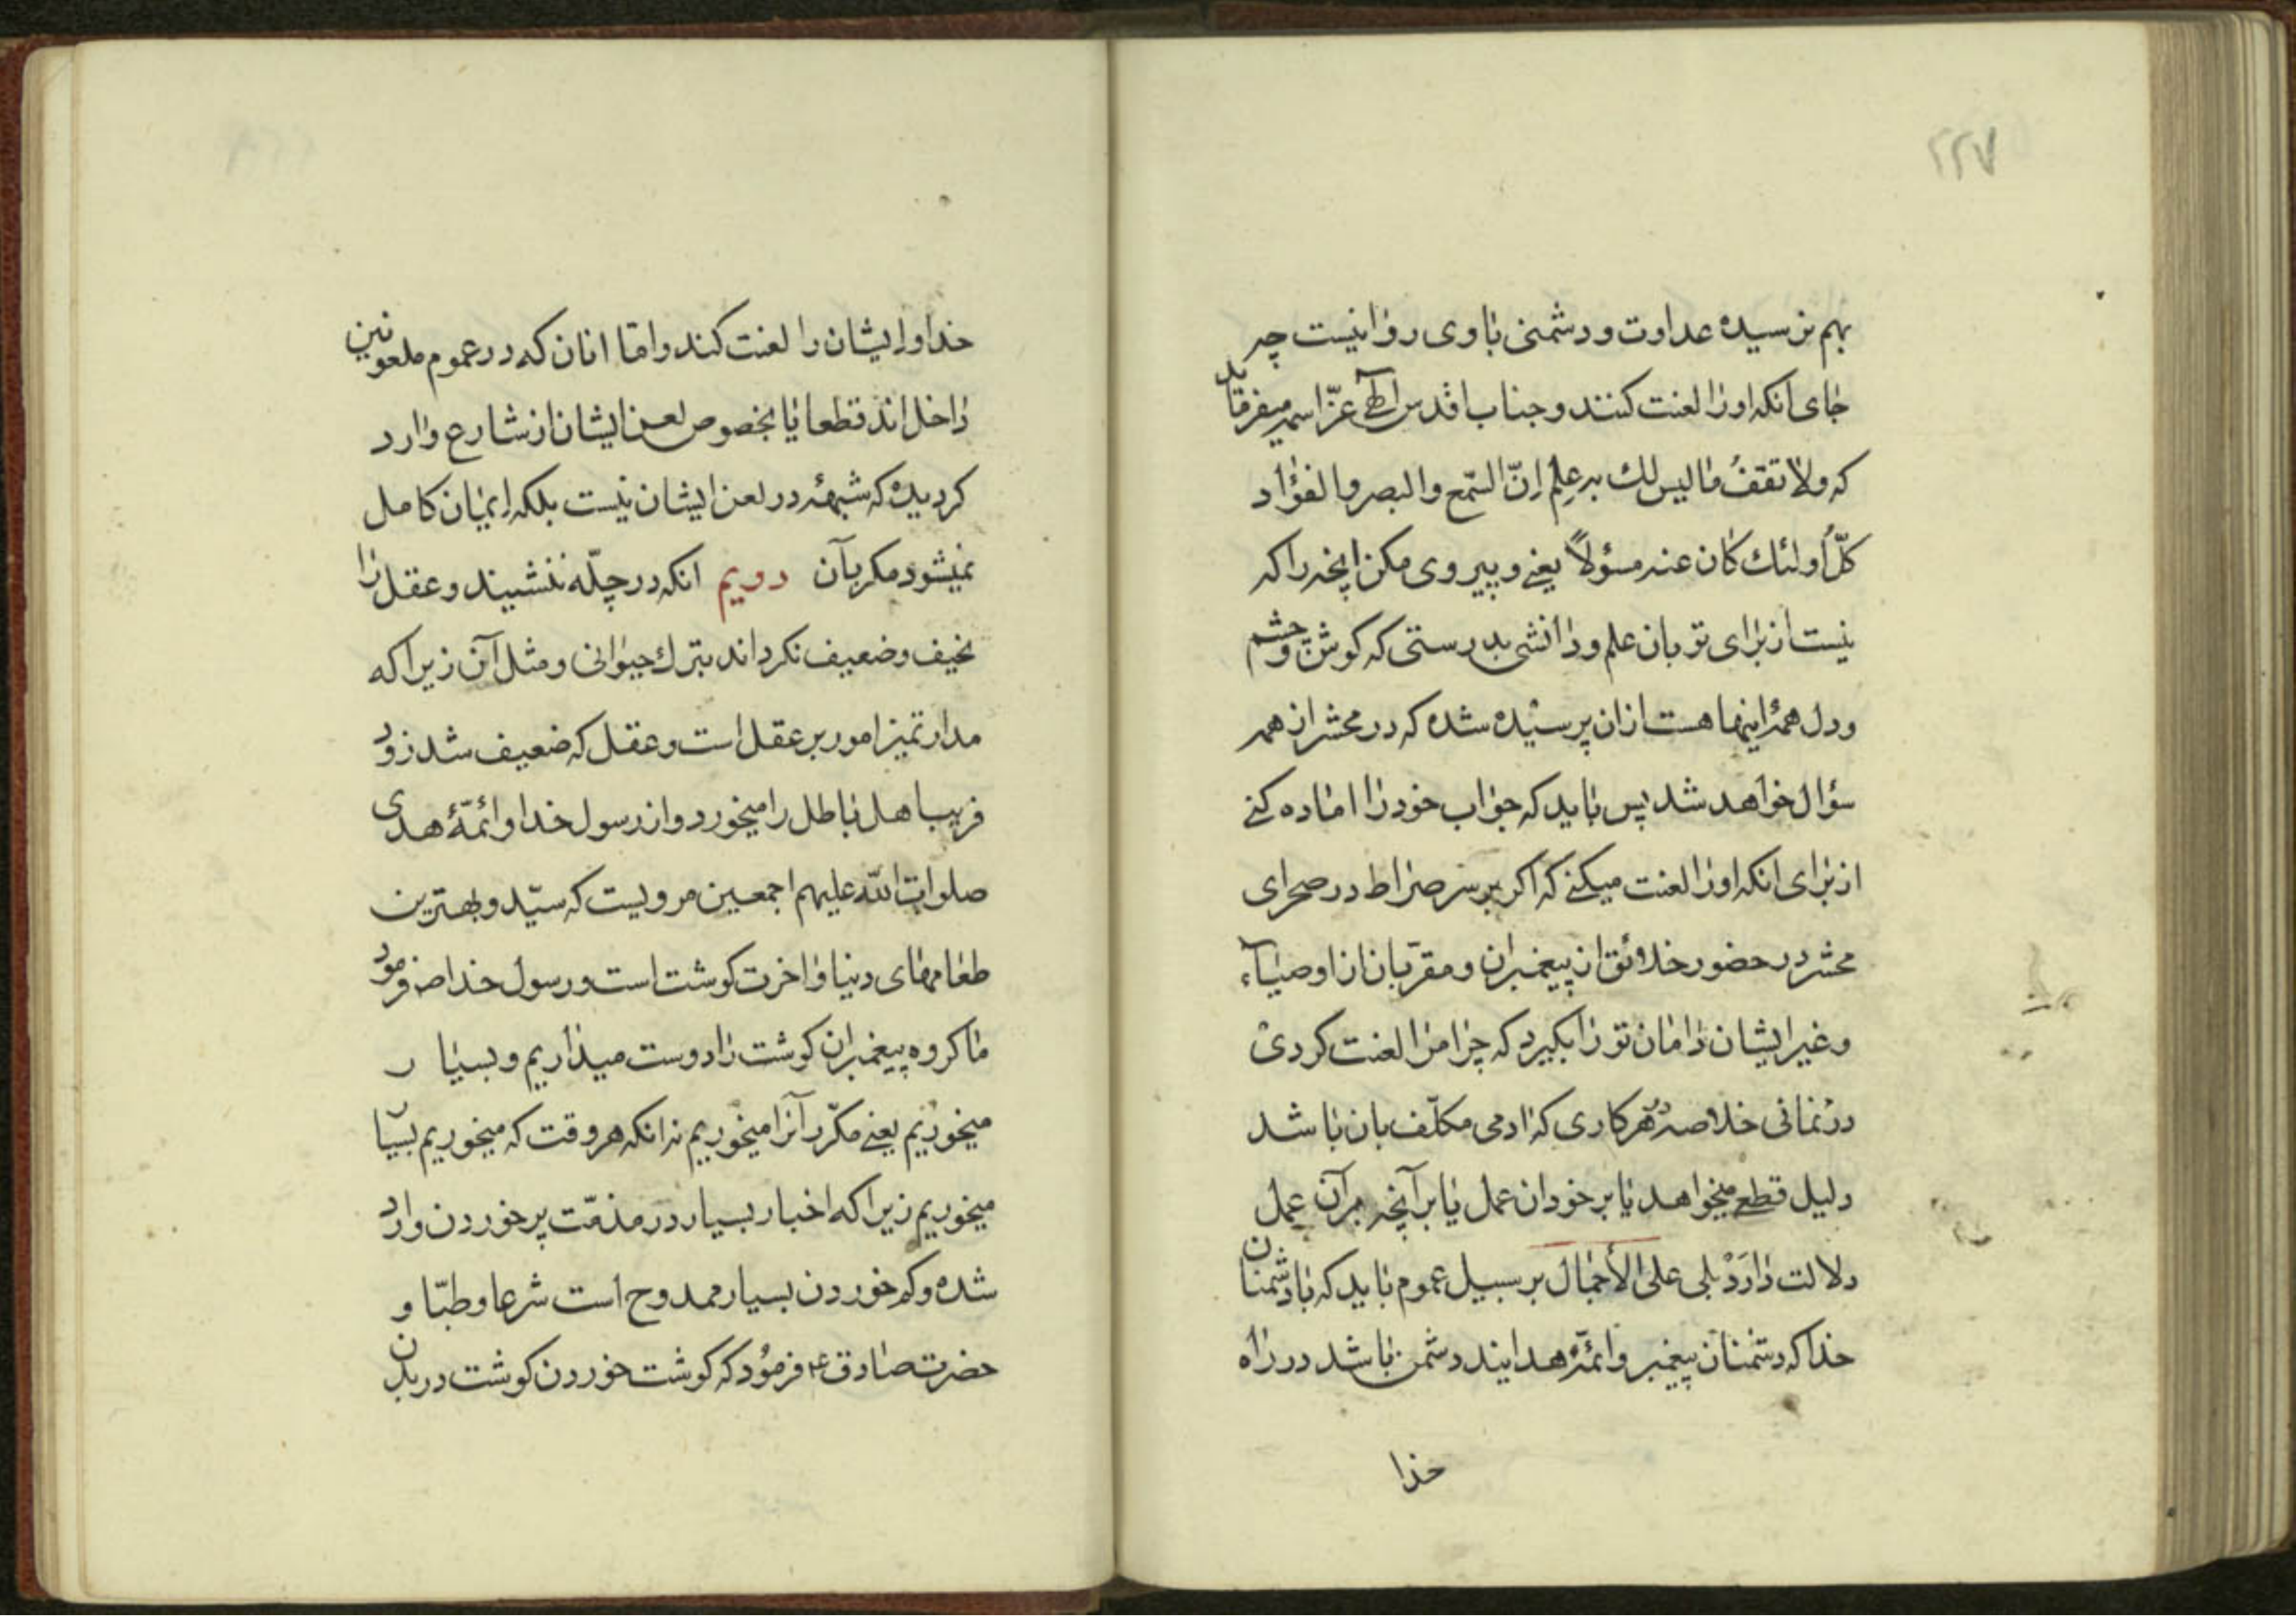 ۲۲۷
بهم نرسیده عداوت و دشمنی با وی روا نیست چه
جای آنکه او را لعنت کنند و جناب اقدس الهی عزّ اسمه میفرماید
که ولا تقف ما لیس لك به علم انّ السّمع والبصر والفؤاد
کلّ اُولئك كان عنه مسؤلاً یعنے و پیروی مکن انچه را که
نیست از برای تو بان علم و دانشی بدرستی که کوش و چشم
و دل همهٔ اینها هست از ان پرسیده شده که در محشر از همه
سؤال خواهد شد پس باید که جواب خود را اماده کنے
از برای انکه او را لعنت میکنے که اکر بر سر صراط در صحرای
محشر در حضور خلائق از پیغمبران و مقرّبان از اوصیآء
و غیر ایشان دامان تو را بکیرد که چرا مرا لعنت کردی
در نمانی خلاصه هر کاری که ادمی مکلّف بان باشد
دلیل قطع میخواهد یا بر خود ان عمل یا بر آنچه بر آن عمل
دلالت دارَدْ بلی علی الأجمال بر سبیل عموم باید که با دشمنان
خدا که دشمنان پیغمبر و ائمّهٔ هدایند دشمن باشد در راه
خدا
خدا و ایشان را لعنت کند و امّا انان که در عموم ملعونین
داخل اند قطعا یا بخصوص لعن ایشان از شارع وارد
کردیده که شبههٔ در لعن ایشان نیست بلکه ایمان کامل
نمیشود مکر بآن دویم انکه در چلّه ننشیند و عقل را
نحیف و ضعیف نکرداند بترك حیوانی و مثل آن زیرا که
مدار تمیز امور بر عقل است و عقل که ضعیف شد زود
فریب اهل باطل را میخورد و از رسول خدا و ائمّهٔ هدی
صلوات اللّه علیهم اجمعین مرویست که سیّد و بهترین
طعامهای دنیا و اخرت کوشت است و رسول خدا ص فرمود
ما کروه پیغمبران کوشت را دوست میداریم و بسیار
میخوریم یعنے مکرّر آنرا میخوریم نه انکه هر وقت که میخوریم بسیا
میخوریم زیرا که اخبار بسیار در مذمّت پر خوردن وارد
شده و کم خوردن بسیار ممدوح است شرعا و طبّا و
حضرت صادق ع فرمُود که گوشت خوردن کوشت در بدن